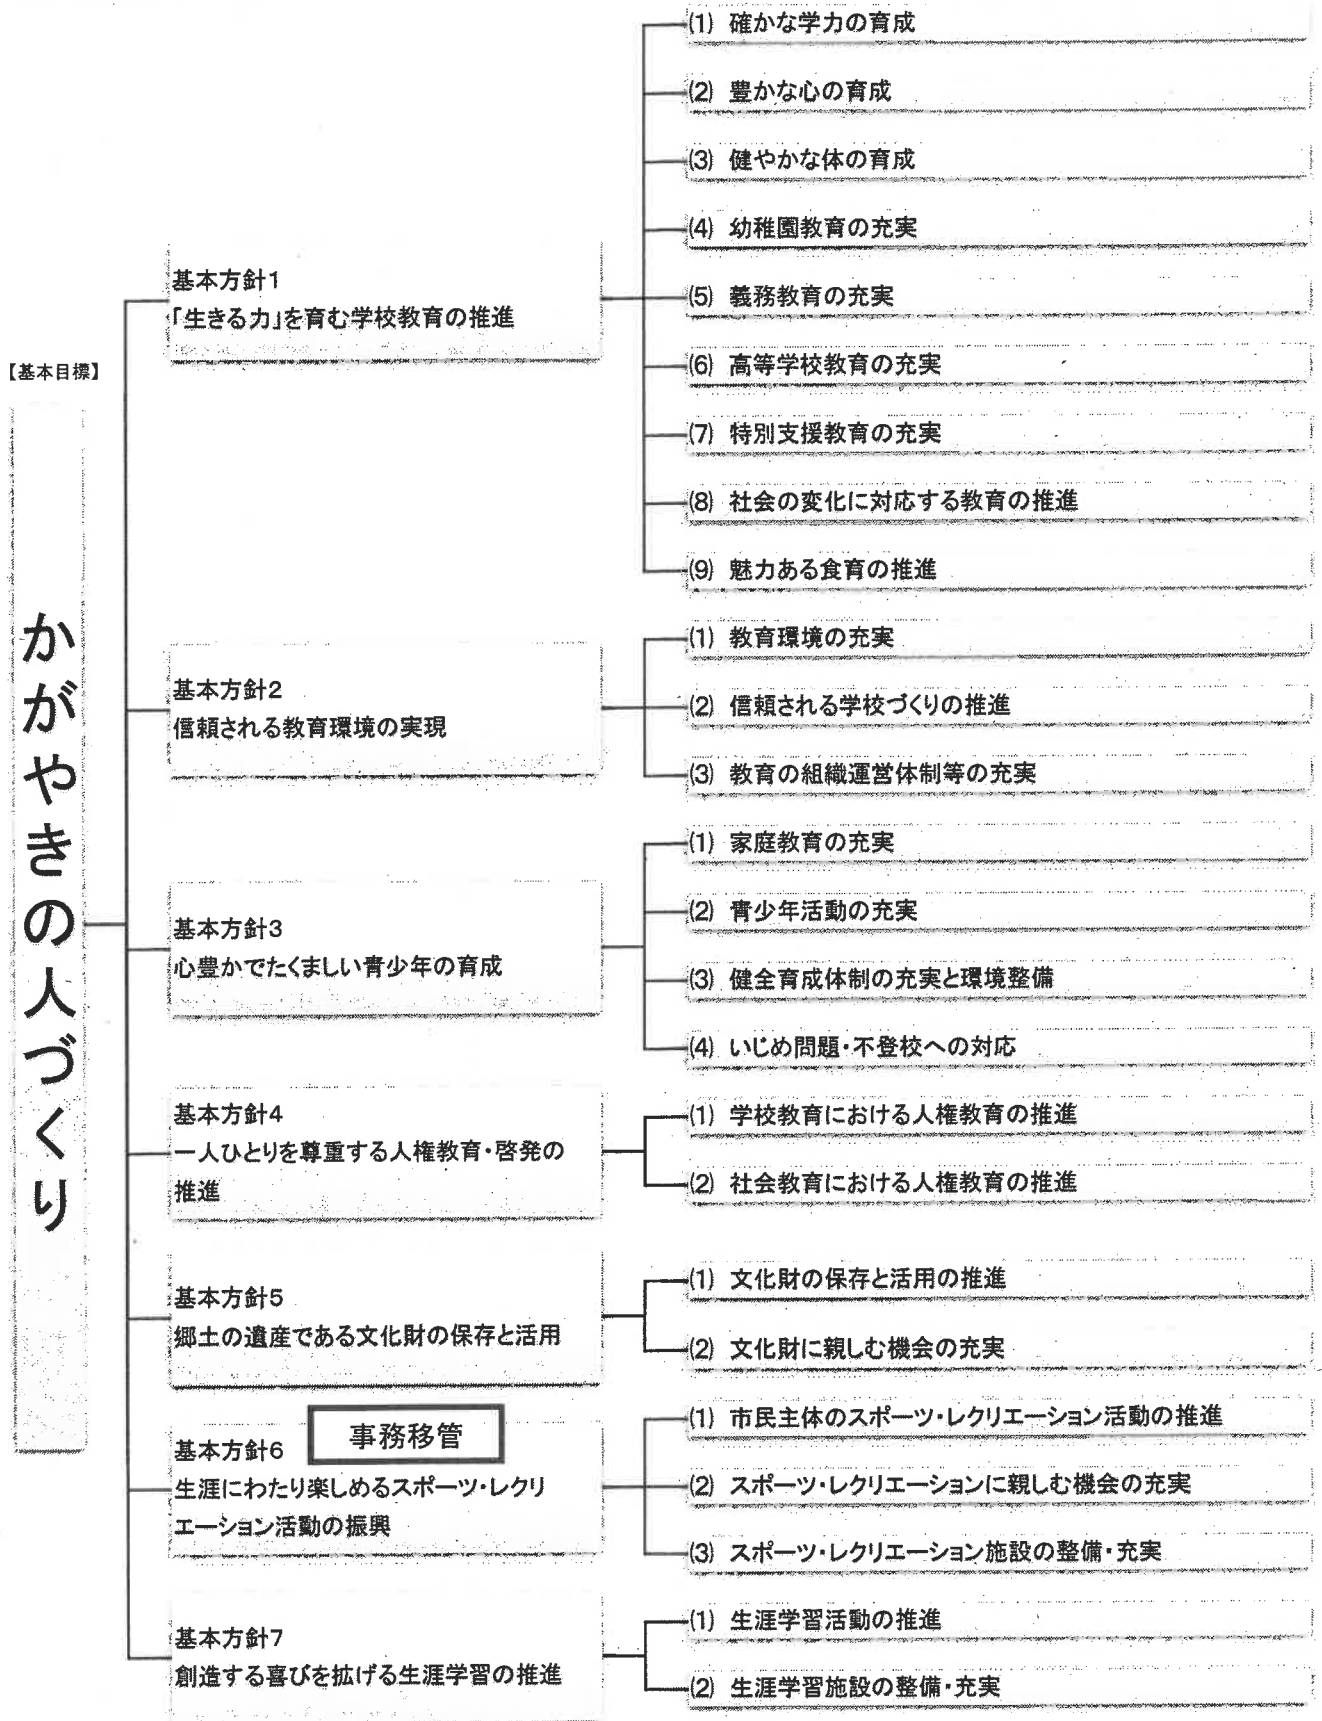 【基本目標】
かがやきの人づくり
基本方針1
「生きる力」を育む学校教育の推進
(1) 確かな学力の育成
(2) 豊かな心の育成
(3) 健やかな体の育成
(4) 幼稚園教育の充実
(5) 義務教育の充実
(6) 高等学校教育の充実
(7) 特別支援教育の充実
(8) 社会の変化に対応する教育の推進
(9) 魅力ある食育の推進
基本方針2
信頼される教育環境の実現
(1) 教育環境の充実
(2) 信頼される学校づくりの推進
(3) 教育の組織運営体制等の充実
基本方針3
心豊かでたくましい青少年の育成
(1) 家庭教育の充実
(2) 青少年活動の充実
(3) 健全育成体制の充実と環境整備
(4) いじめ問題・不登校への対応
基本方針4
一人ひとりを尊重する人権教育・啓発の
推進
(1) 学校教育における人権教育の推進
(2) 社会教育における人権教育の推進
基本方針5
郷土の遺産である文化財の保存と活用
(1) 文化財の保存と活用の推進
(2) 文化財に親しむ機会の充実
事務移管
基本方針6
生涯にわたり楽しめるスポーツ・レクリ
エーション活動の振興
(1) 市民主体のスポーツ・レクリエーション活動の推進
(2) スポーツ・レクリエーションに親しむ機会の充実
(3) スポーツ・レクリエーション施設の整備・充実
基本方針7
創造する喜びを拡げる生涯学習の推進
(1) 生涯学習活動の推進
(2) 生涯学習施設の整備・充実